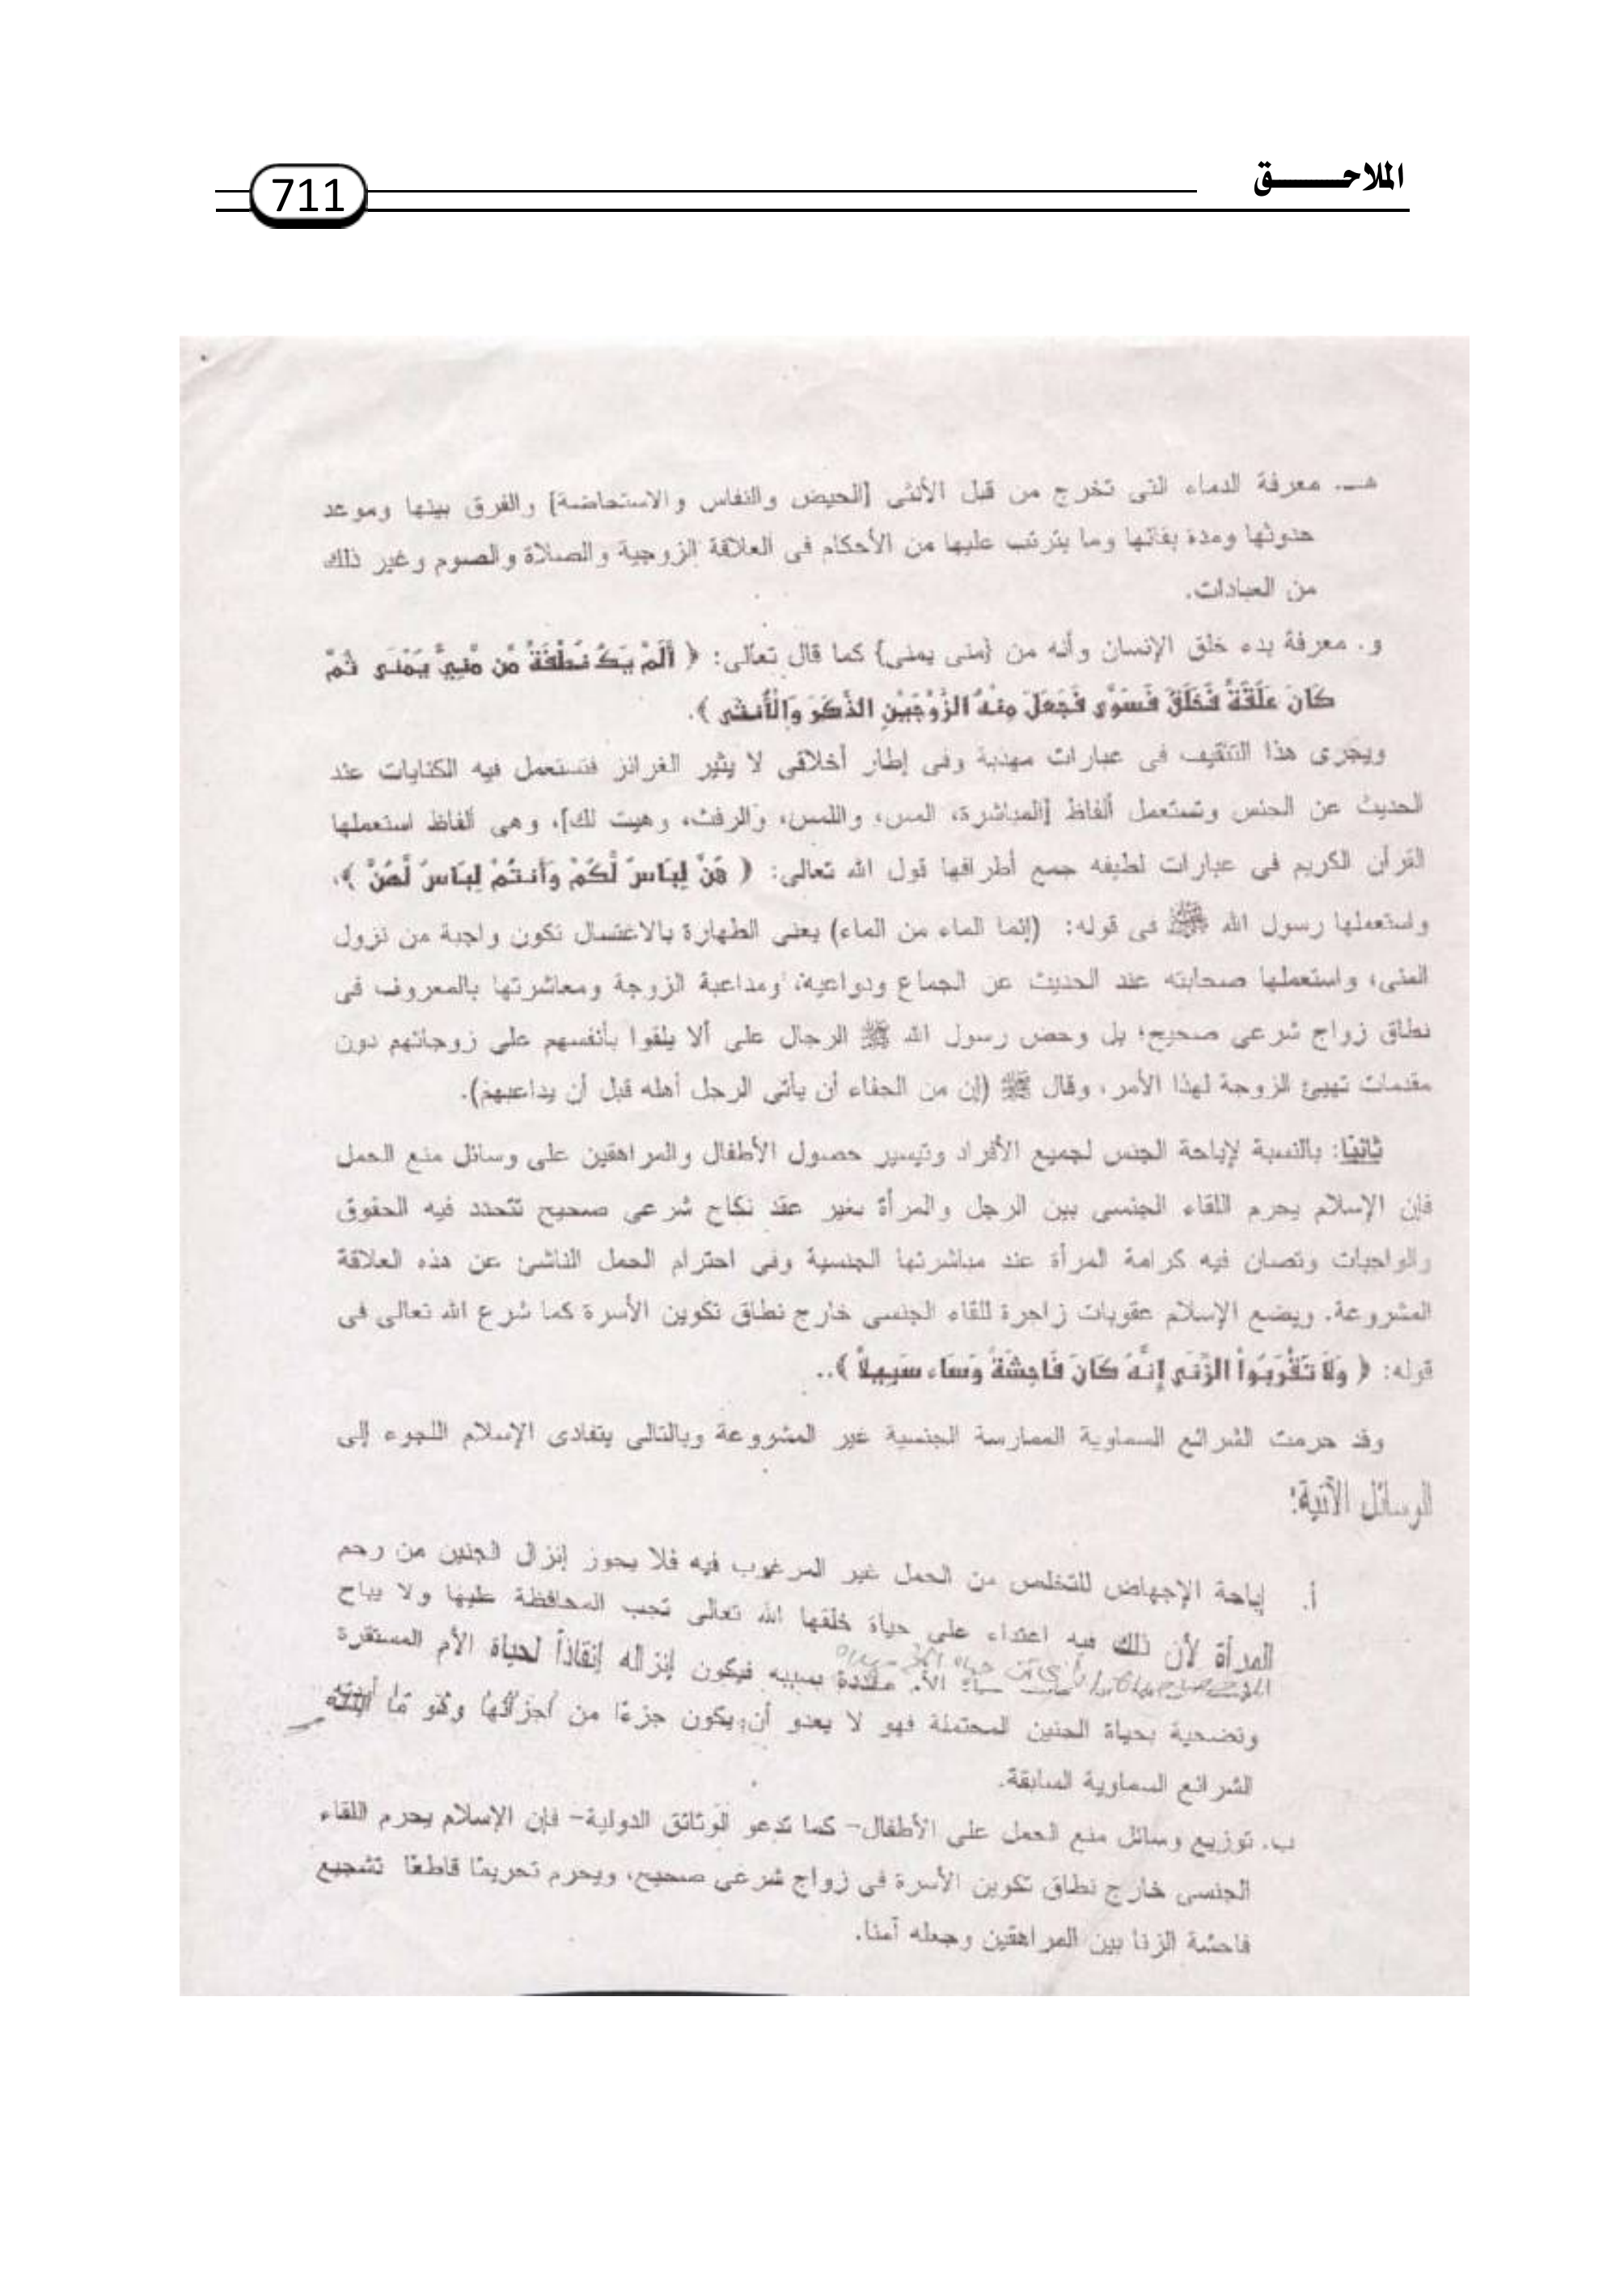 الملاحـــــــق
711
هـــ. معرفة الدماء التى تخرج من قبل الأنثى [الحيض والنفاس والاستحاضة] والفرق بينها وموعد
حدوثها ومدة بقائها وما يترتب عليها من الأحكام فى العلاقة الزوجية والصلاة والصوم وغير ذلك
من العبادات.
و. معرفة بدء خلق الإنسان وأنه من {منى يمنى} كما قال تعالى: ﴿ أَلَمْ يَكُ نُطْفَةً مِّن مَّنِيٍّ يُمْنَى ثُمَّ
كَانَ عَلَقَةً فَخَلَقَ فَسَوَّى فَجَعَلَ مِنْهُ الزَّوْجَيْنِ الذَّكَرَ وَالْأُنثَى ﴾.
ويجرى هذا التثقيف فى عبارات مهذبة وفى إطار أخلاقى لا يثير الغرائز فتستعمل فيه الكنايات عند
الحديث عن الجنس وتستعمل ألفاظ [المباشرة، المس، واللمس، والرفث، وهيت لك]، وهى ألفاظ استعملها
القرآن الكريم فى عبارات لطيفه جمع أطرافها قول الله تعالى: ﴿ هُنَّ لِبَاسٌ لَّكُمْ وَأَنتُمْ لِبَاسٌ لَّهُنَّ ﴾،
واستعملها رسول الله ﷺ فى قوله: (إنما الماء من الماء) يعنى الطهارة بالاغتسال تكون واجبة من نزول
المنى، واستعملها صحابته عند الحديث عن الجماع ودواعيه، ومداعبة الزوجة ومعاشرتها بالمعروف فى
نطاق زواج شرعى صحيح؛ بل وحض رسول الله ﷺ الرجال على ألا يلقوا بأنفسهم على زوجاتهم دون
مقدمات تهيئ الزوجة لهذا الأمر، وقال ﷺ (إن من الجفاء أن يأتى الرجل أهله قبل أن يداعبهم).
ثانيًا: بالنسبة لإباحة الجنس لجميع الأفراد وتيسير حصول الأطفال والمراهقين على وسائل منع الحمل
فإن الإسلام يحرم اللقاء الجنسى بين الرجل والمرأة بغير عقد نكاح شرعى صحيح تتحدد فيه الحقوق
والواجبات وتصان فيه كرامة المرأة عند مباشرتها الجنسية وفى احترام الحمل الناشئ عن هذه العلاقة
المشروعة. ويضع الإسلام عقوبات زاجرة للقاء الجنسى خارج نطاق تكوين الأسرة كما شرع الله تعالى فى
قوله: ﴿ وَلَا تَقْرَبُواْ الزِّنَى إِنَّهُ كَانَ فَاحِشَةً وَسَاء سَبِيلاً ﴾..
وقد حرمت الشرائع السماوية الممارسة الجنسية غير المشروعة وبالتالى يتفادى الإسلام اللجوء إلى
الوسائل الآتية:
أ. إباحة الإجهاض للتخلص من الحمل غير المرغوب فيه فلا يجوز إنزال الجنين من رحم
المرأة لأن ذلك فيه اعتداء على حياة خلقها الله تعالى تجب المحافظة عليها ولا يباح
الأم مهددة بسببه فيكون إنزاله إنقاذاً لحياة الأم المستقرة
وتضحية بحياة الجنين المحتملة فهو لا يعدو أن يكون جزءًا من أجزائها وهو ما
الشرائع السماوية السابقة.
ب. توزيع وسائل منع الحمل على الأطفال- كما تدعو الوثائق الدولية- فإن الإسلام يحرم اللقاء
الجنسى خارج نطاق تكوين الأسرة فى زواج شرعى صحيح، ويحرم تحريمًا قاطعًا تشجيع
فاحشة الزنا بين المراهقين وجعله آمنا.